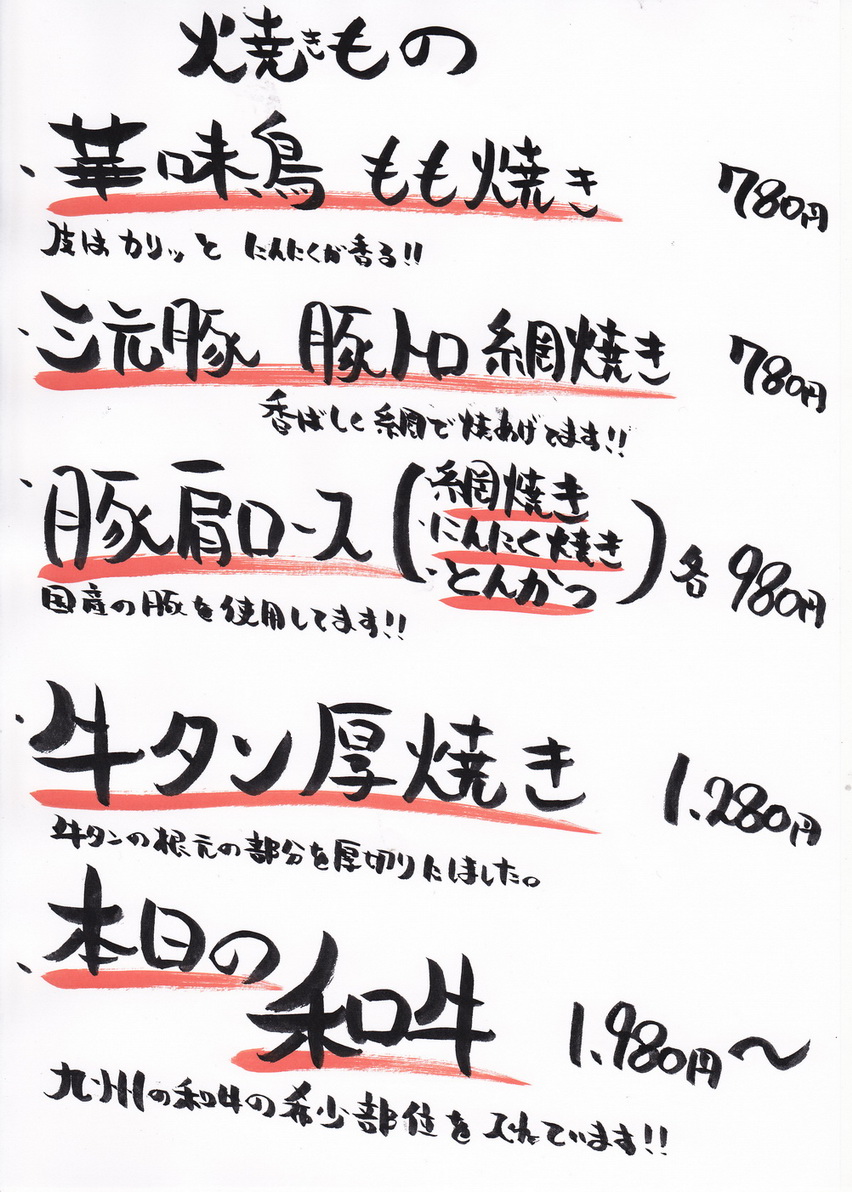 焼きもの
・華味鳥 もも焼き 780円
皮はカリッと にんにくが香る!!
・三元豚 豚トロ網焼き 780円
香ばしく網で焼あげてます!!
・豚肩ロース(・網焼き ・にんにく焼き ・とんかつ)各980円
国産の豚を使用してます!!
・牛タン厚焼き 1.280円
牛タンの根元の部分を厚切りにしました。
・本日の
和牛 1.980円〜
九州の和牛の希少部位を入れています!!